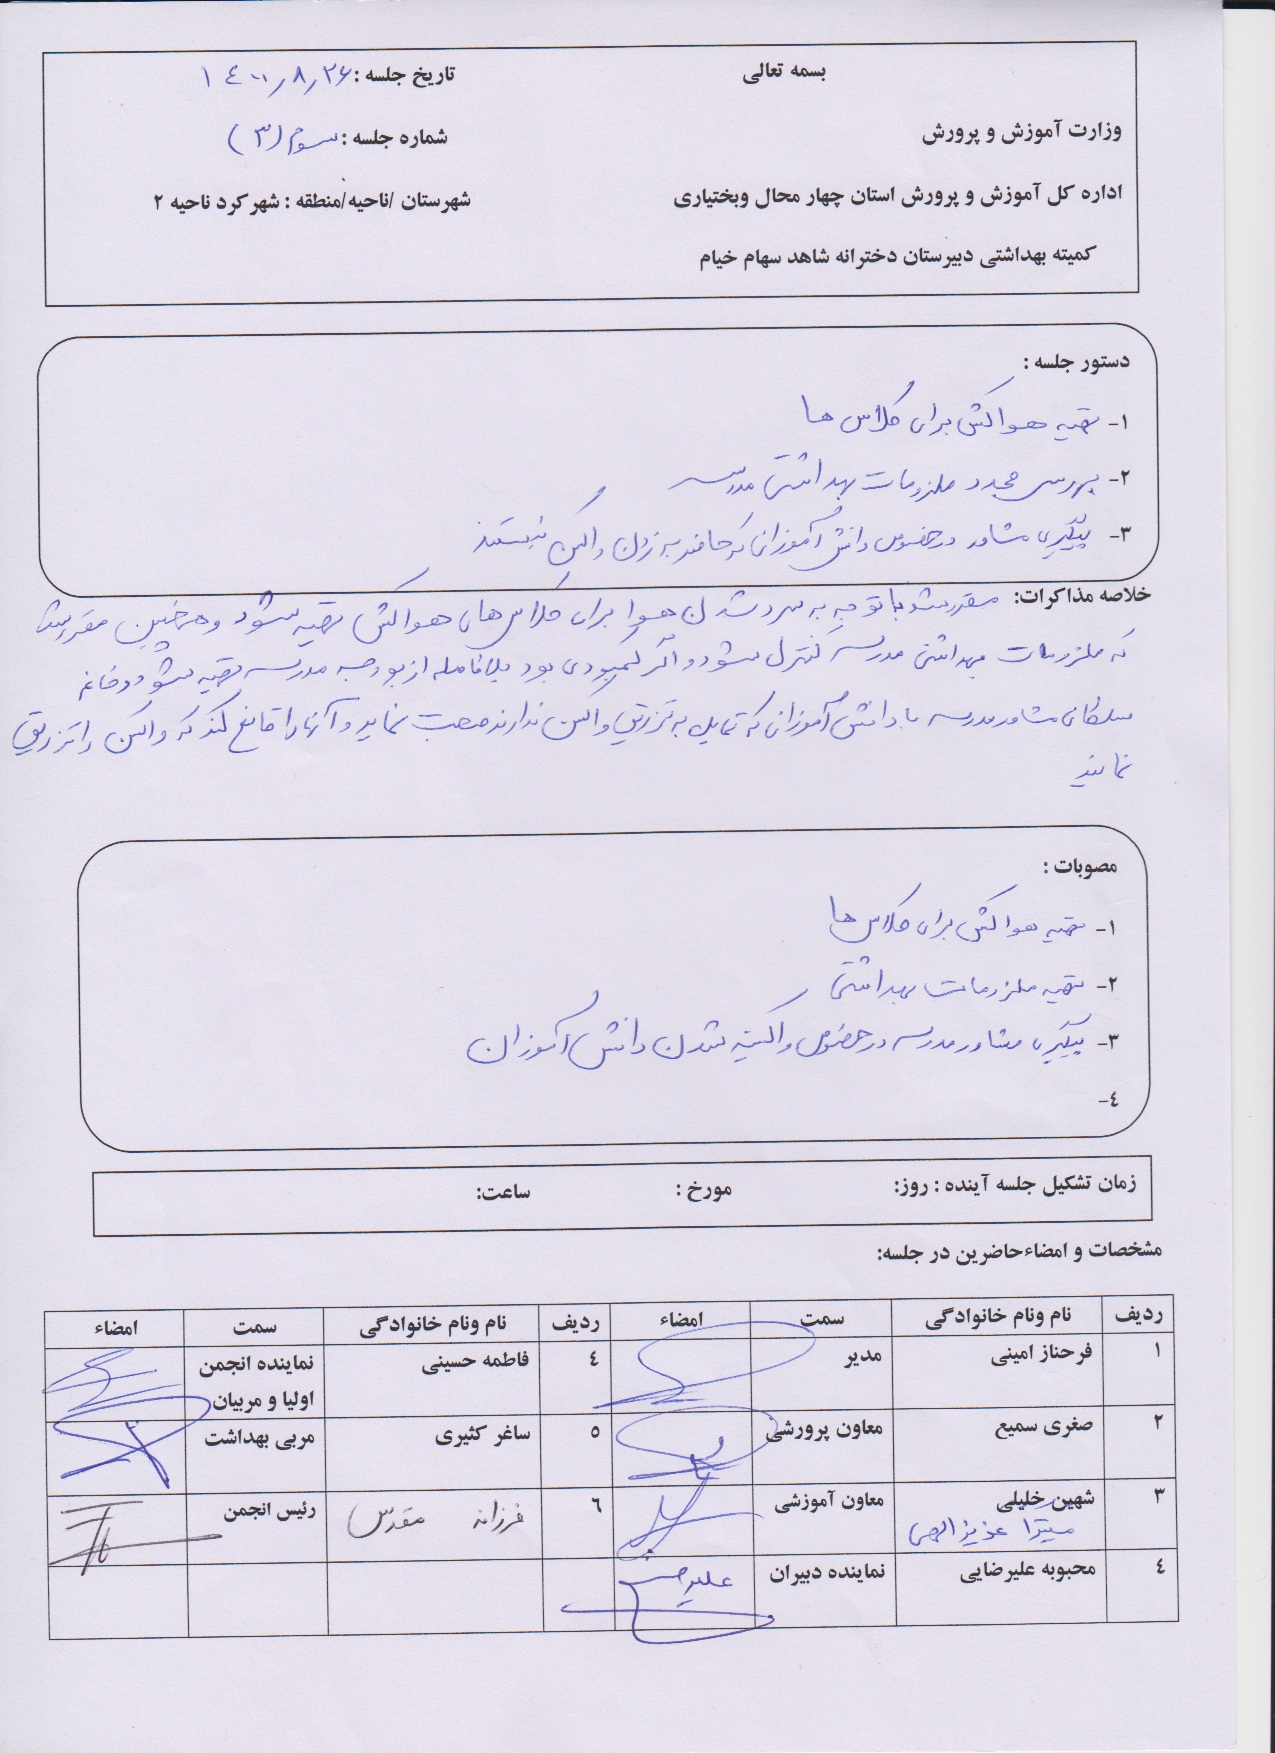 بسمه تعالی
تاریخ جلسه : ۱۴۰۰٫۸٫۲۶
وزارت آموزش و پرورش
شماره جلسه : سوم (۳)
اداره کل آموزش و پرورش استان چهار محال وبختیاری
شهرستان /ناحیه/منطقه : شهرکرد ناحیه ۲
کمیته بهداشتی دبیرستان دخترانه شاهد سهام خیام
دستور جلسه :
۱- تهیه هواکش برای کلاس ها
۲- بررسی مجدد ملزومات بهداشتی مدرسه
۳- پیگیری مشاور در خصوص دانش آموزانی که حاضر به زدن واکسن نیستند
خلاصه مذاکرات: مقرر شد با توجه به سرد شدن هوا برای کلاس های هواکش تهیه شود و همچنین مقرر شد
که ملزومات بهداشتی مدرسه کنترل شود و اگر کمبودی بود بلافاصله از بودجه مدرسه تهیه شود و خانم
مشاور مدرسه با دانش آموزانی که تمایل به تزریق واکسن ندارند صحبت نماید و آنها را قانع کند که واکسن را تزریق
نمایند
مصوبات :
۱- تهیه هواکش برای کلاس ها
۲- تهیه ملزومات بهداشتی
۳- پیگیری مشاور مدرسه در خصوص واکسینه شدن دانش آموزان
٤-
زمان تشکیل جلسه آینده : روز: مورخ : ساعت:
مشخصات و امضاءحاضرین در جلسه:
ردیف نام ونام خانوادگی سمت امضاء ردیف نام ونام خانوادگی سمت امضاء
۱ فرحناز امینی مدیر ٤ فاطمه حسینی نماینده انجمن
اولیا و مربیان
۲ صغری سمیع معاون پرورشی ٥ ساغر کثیری مربی بهداشت
۳ شهین خلیلی معاون آموزشی ٦ فرزانه مقدس رئیس انجمن
میترا عزیزالهی
٤ محبوبه علیرضایی نماینده دبیران علیرضایی